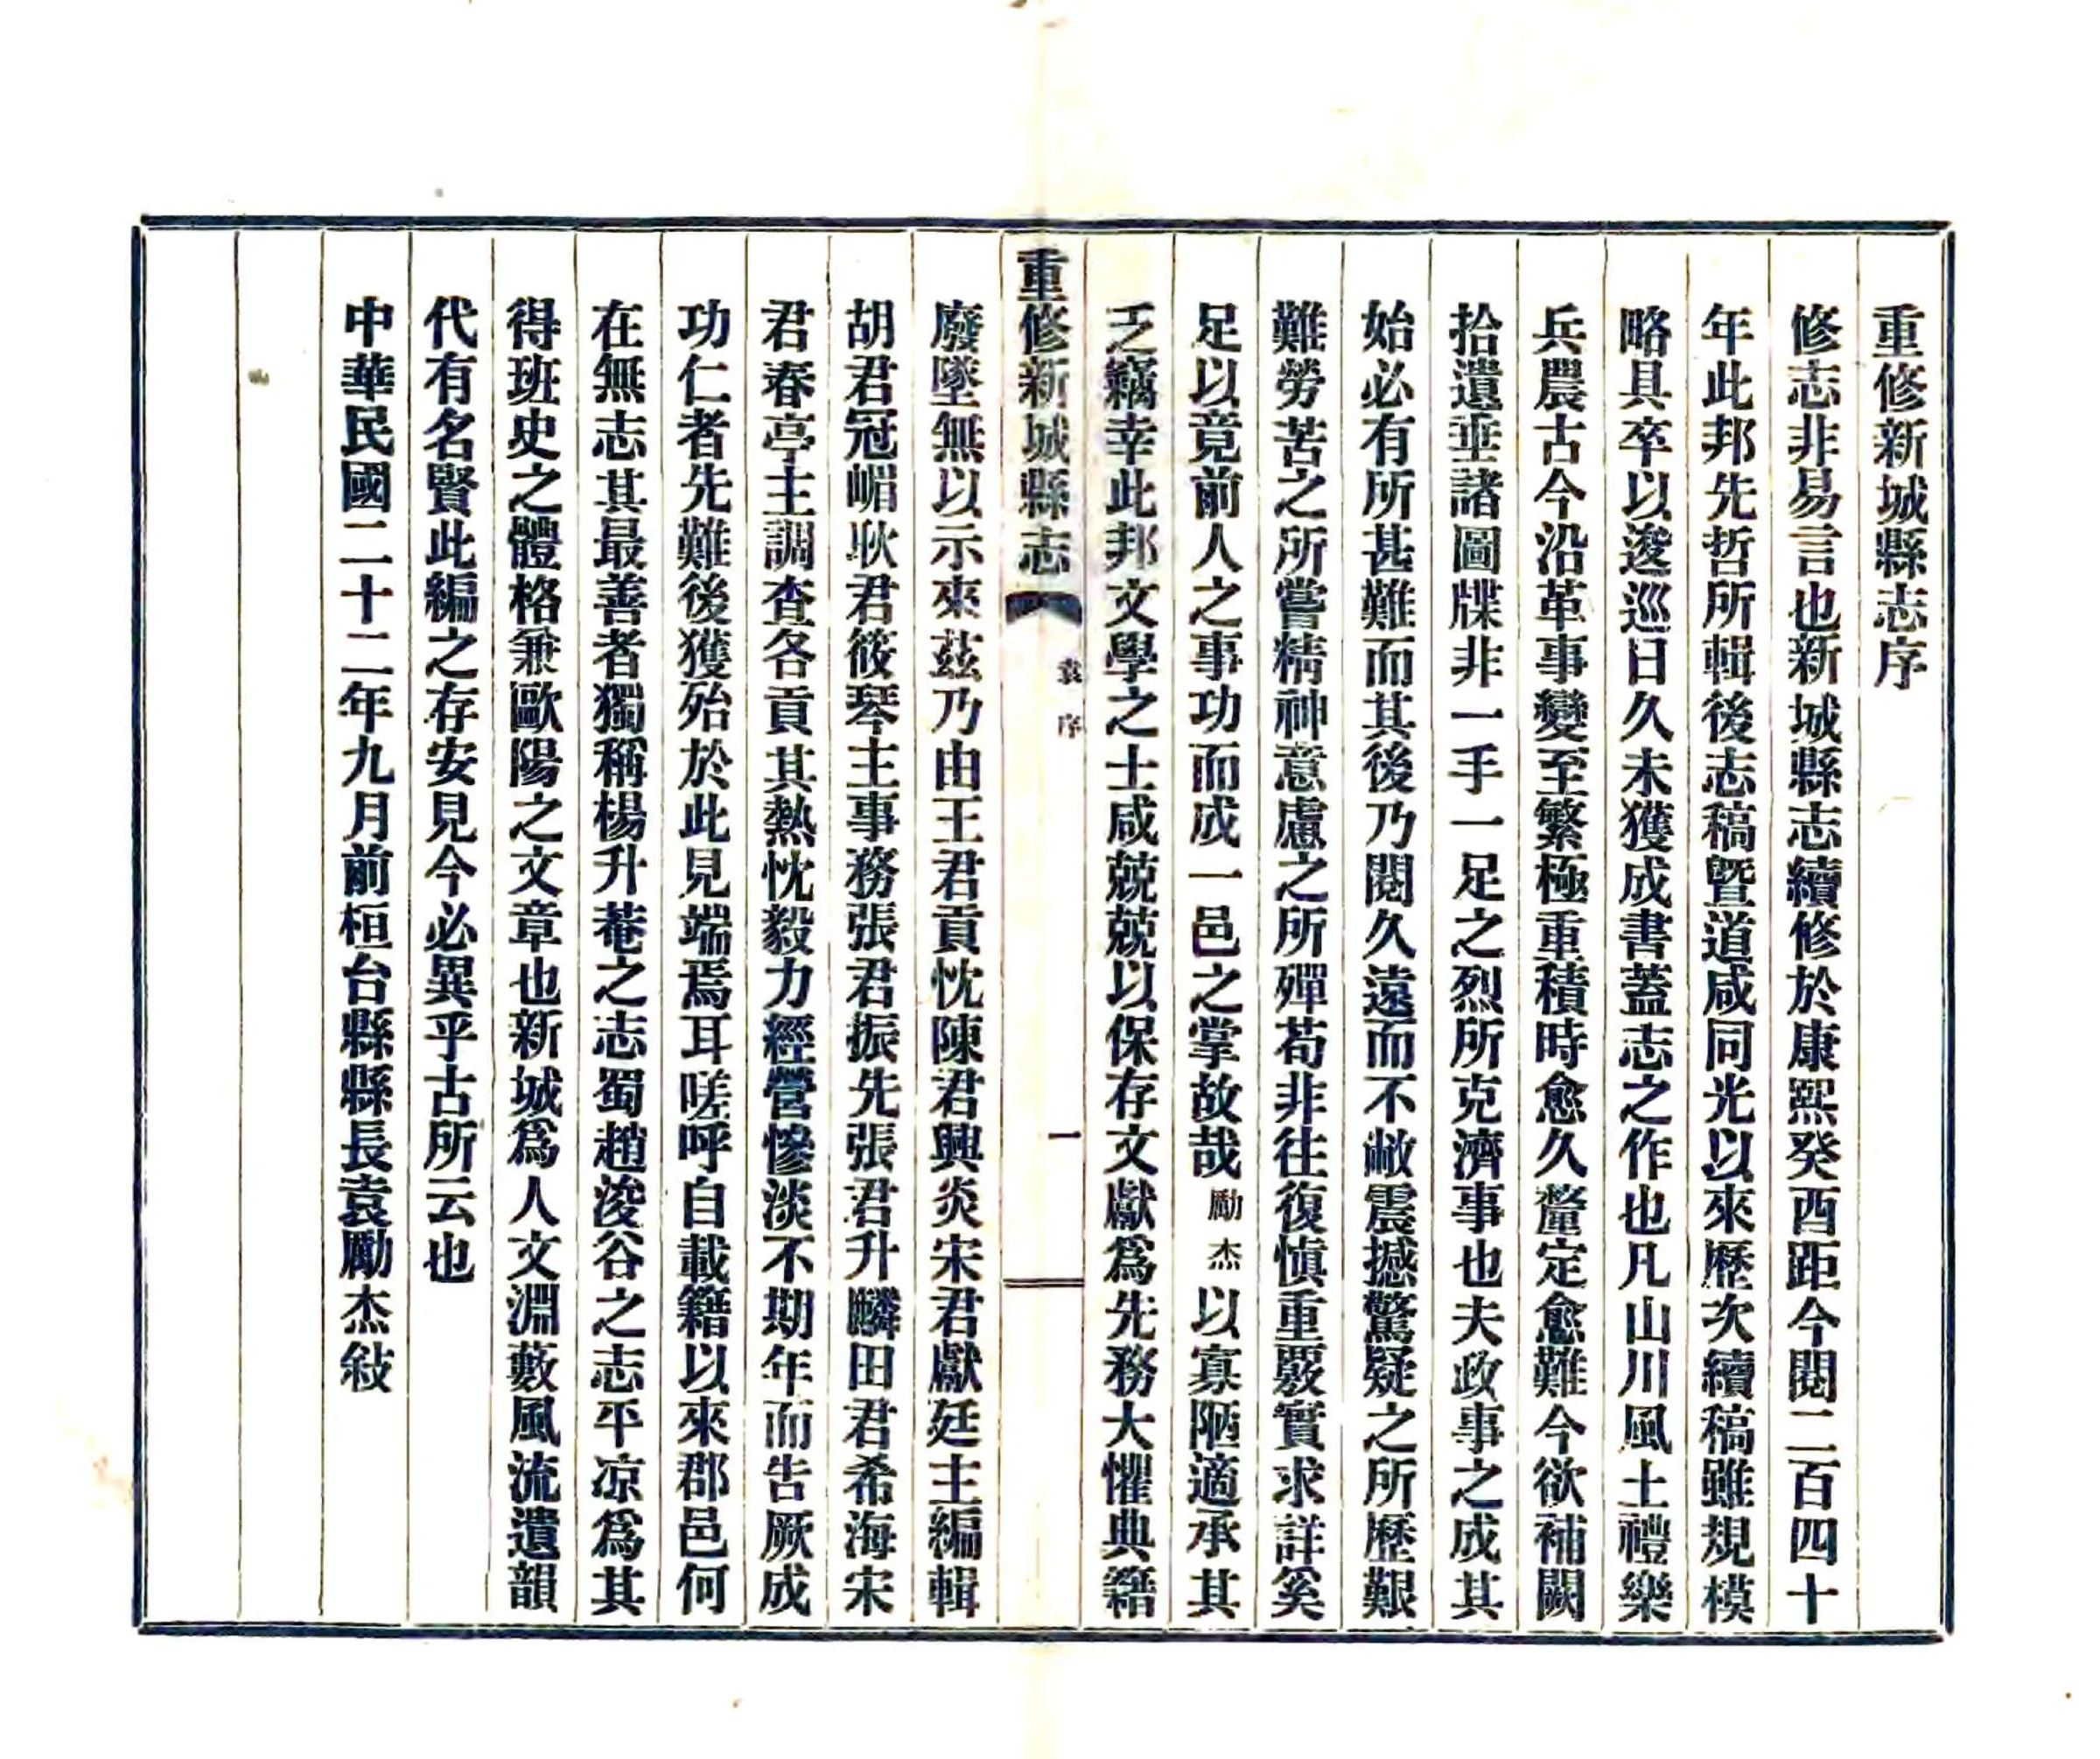 重修新城縣志序
修志非易言也新城縣志續修於康熙癸酉距今閱二百四十
年此邦先哲所輯後志稿暨道咸同光以來歷次續稿雖規模
略具卒以逡巡日久未獲成書蓋志之作也凡山川風土禮樂
兵農古今沿革事變至繁極重積時愈久釐定愈難今欲補闕
拾遺垂諸圖牒非一手一足之烈所克濟事也夫政事之成其
始必有所甚難而其後乃閱久遠而不敝震撼驚疑之所歷艱
難勞苦之所嘗精神意慮之所殫苟非往復慎重覈實求詳奚
足以竟前人之事功而成一邑之掌故哉勵杰以寡陋適承其
乏竊幸此邦文學之士咸兢兢以保存文獻爲先務大懼典籍
重修新城縣志 袁序 一
廢墜無以示來茲乃由王君貢忱陳君興炎宋君獻廷主編輯
胡君冠嵋耿君筱琴主事務張君振先張君升麟田君希海宋
君春亭主調查各貢其熱忱毅力經營慘淡不期年而告厥成
功仁者先難後獲殆於此見端焉耳嗟呼自載籍以來郡邑何
在無志其最善者獨稱楊升菴之志蜀趙浚谷之志平凉爲其
得班史之體格兼歐陽之文章也新城爲人文淵藪風流遺韻
代有名賢此編之存安見今必異乎古所云也
中華民國二十二年九月前桓台縣縣長袁勵杰敍